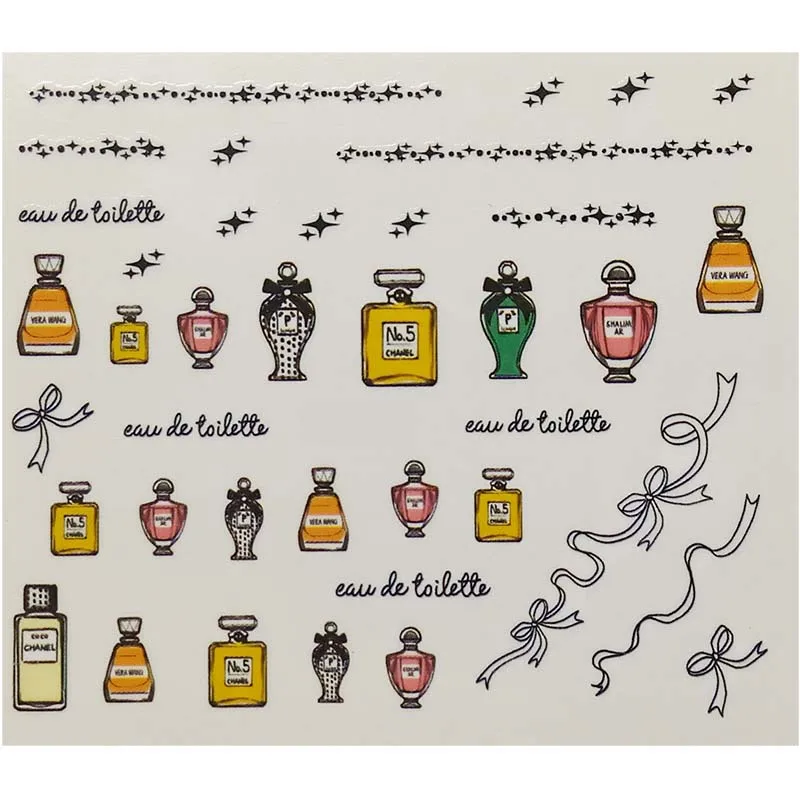 eau de toilette
VERA WANG
VERA WANG
No.5
CHANEL
SHALIM
AR
"P"
No.5
CHANEL
"P"
SHALIM
AR
eau de toilette
eau de toilette
No.5
CHANEL
SHALIM
AR
"P"
VERA WANG
SHALIM
AR
No.5
CHANEL
eau de toilette
COCO
CHANEL
VERA WANG
No.5
CHANEL
"P"
SHALIM
AR